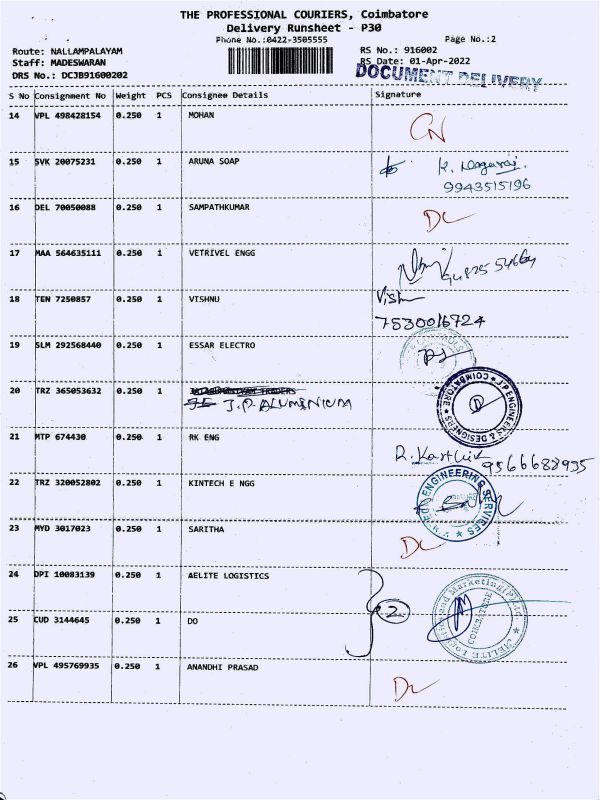 THE PROFESSIONAL COURIERS, Coimbatore
Delivery Runsheet - P30
Phone No.:0422-3505555 Page No.:2
Route: NALLAMPALAYAM RS No.: 916002
Staff: MADESWARAN RS Date: 01-Apr-2022
DRS No.: DCJB91600202 DOCUMENT DELIVERY
S No Consignment No Weight PCS Consignee Details Signature
14 VPL 498428154 0.250 1 MOHAN
15 SVK 20075231 0.250 1 ARUNA SOAP
9943515196
16 DEL 70050088 0.250 1 SAMPATHKUMAR DL
17 MAA 564635111 0.250 1 VETRIVEL ENGG
18 TEN 7250857 0.250 1 VISHNU Vishnu
7530016724
19 SLM 292568440 0.250 1 ESSAR ELECTRO
20 TRZ 365053632 0.250 1
J.P. ALUMINIUM J.P.ENGINEERS & DESIGNERS COIMBATORE
21 MTP 674430 0.250 1 RK ENG
R. Karthick 9566688935
22 TRZ 320052802 0.250 1 KINTECH E NGG ENGINEERING SERVICES
23 MYD 3017023 0.250 1 SARITHA DL
24 DPI 10083139 0.250 1 AELITE LOGISTICS
2 AELITE Logistics and Marketing(P)Ltd. COIMBATORE
25 CUD 3144645 0.250 1 DO
26 VPL 495769935 0.250 1 ANANDHI PRASAD
DL